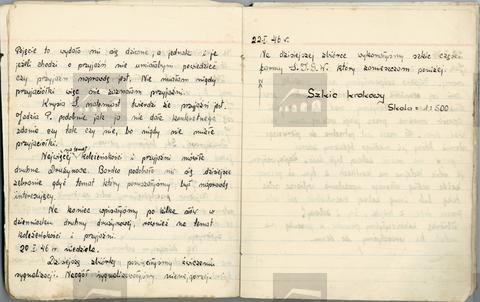 Pojęcie to wydało mi się dziwne, a jednak i ja
jeśli chodzi o przyjaźń nie umiałabym powiedzieć
czy przyjaźń naprawdę jest. Nie miałam nigdy
przyjaciółki więc nie zaznałam przyjaźni.
Krysia S. natomiast twierdzi że przyjaźń jest.
Jadzia P. podobnie jak ja nie dała konkretnego
zdania czy tak czy nie, bo nigdy nie miała
przyjaciółki.
Najwięcej na temat koleżeńskości i przyjaźni mówiła
druhna Drużynowa. Bardzo podobało mi się dzisiejsze
zebranie gdyż temat który poruszałyśmy był naprawdę
interesujący.
Na koniec wpisałyśmy po kilka słów w
dzienniczku druhny drużynowej, również na temat
koleżeńskości i przyjaźni.
20 I. 46 r. niedziela.
Dzisiejszą zbiórkę poświęciłyśmy ćwiczeniu
sygnalizacji. Naogół sygnalizowałyśmy nienajgorzej.
22 I. 46 r.
Na dzisiejszej zbiórce wykonałyśmy szkic części
parku który zamieszczam poniżej.
Szkic krokowy
Skala = 1:500